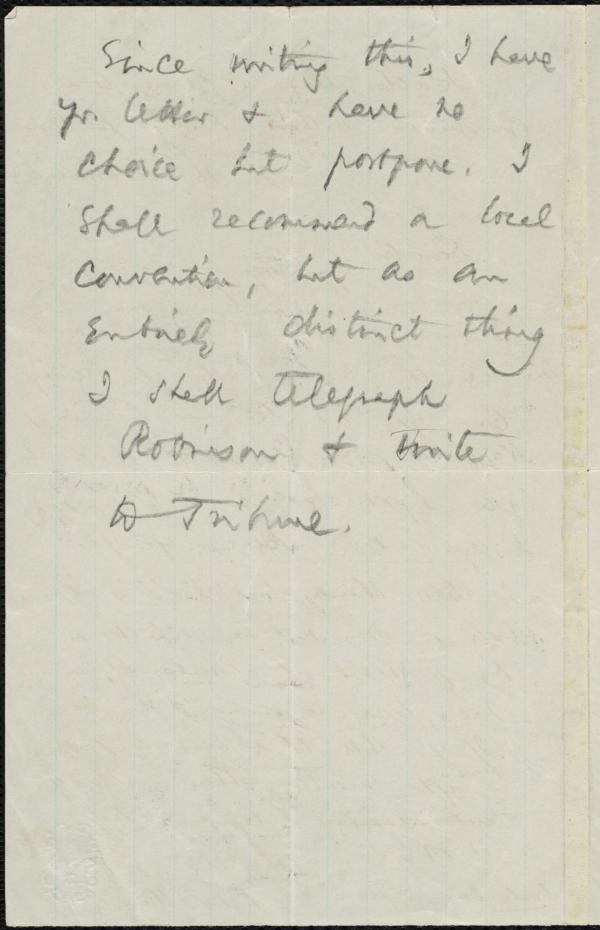 Since writing this, I have
yr. letter & have no
choice but postpone. I
shall recommend a local
Convention, but as an
Entirely distinct thing
I shall telegraph
Robinson & write
to Tribune.